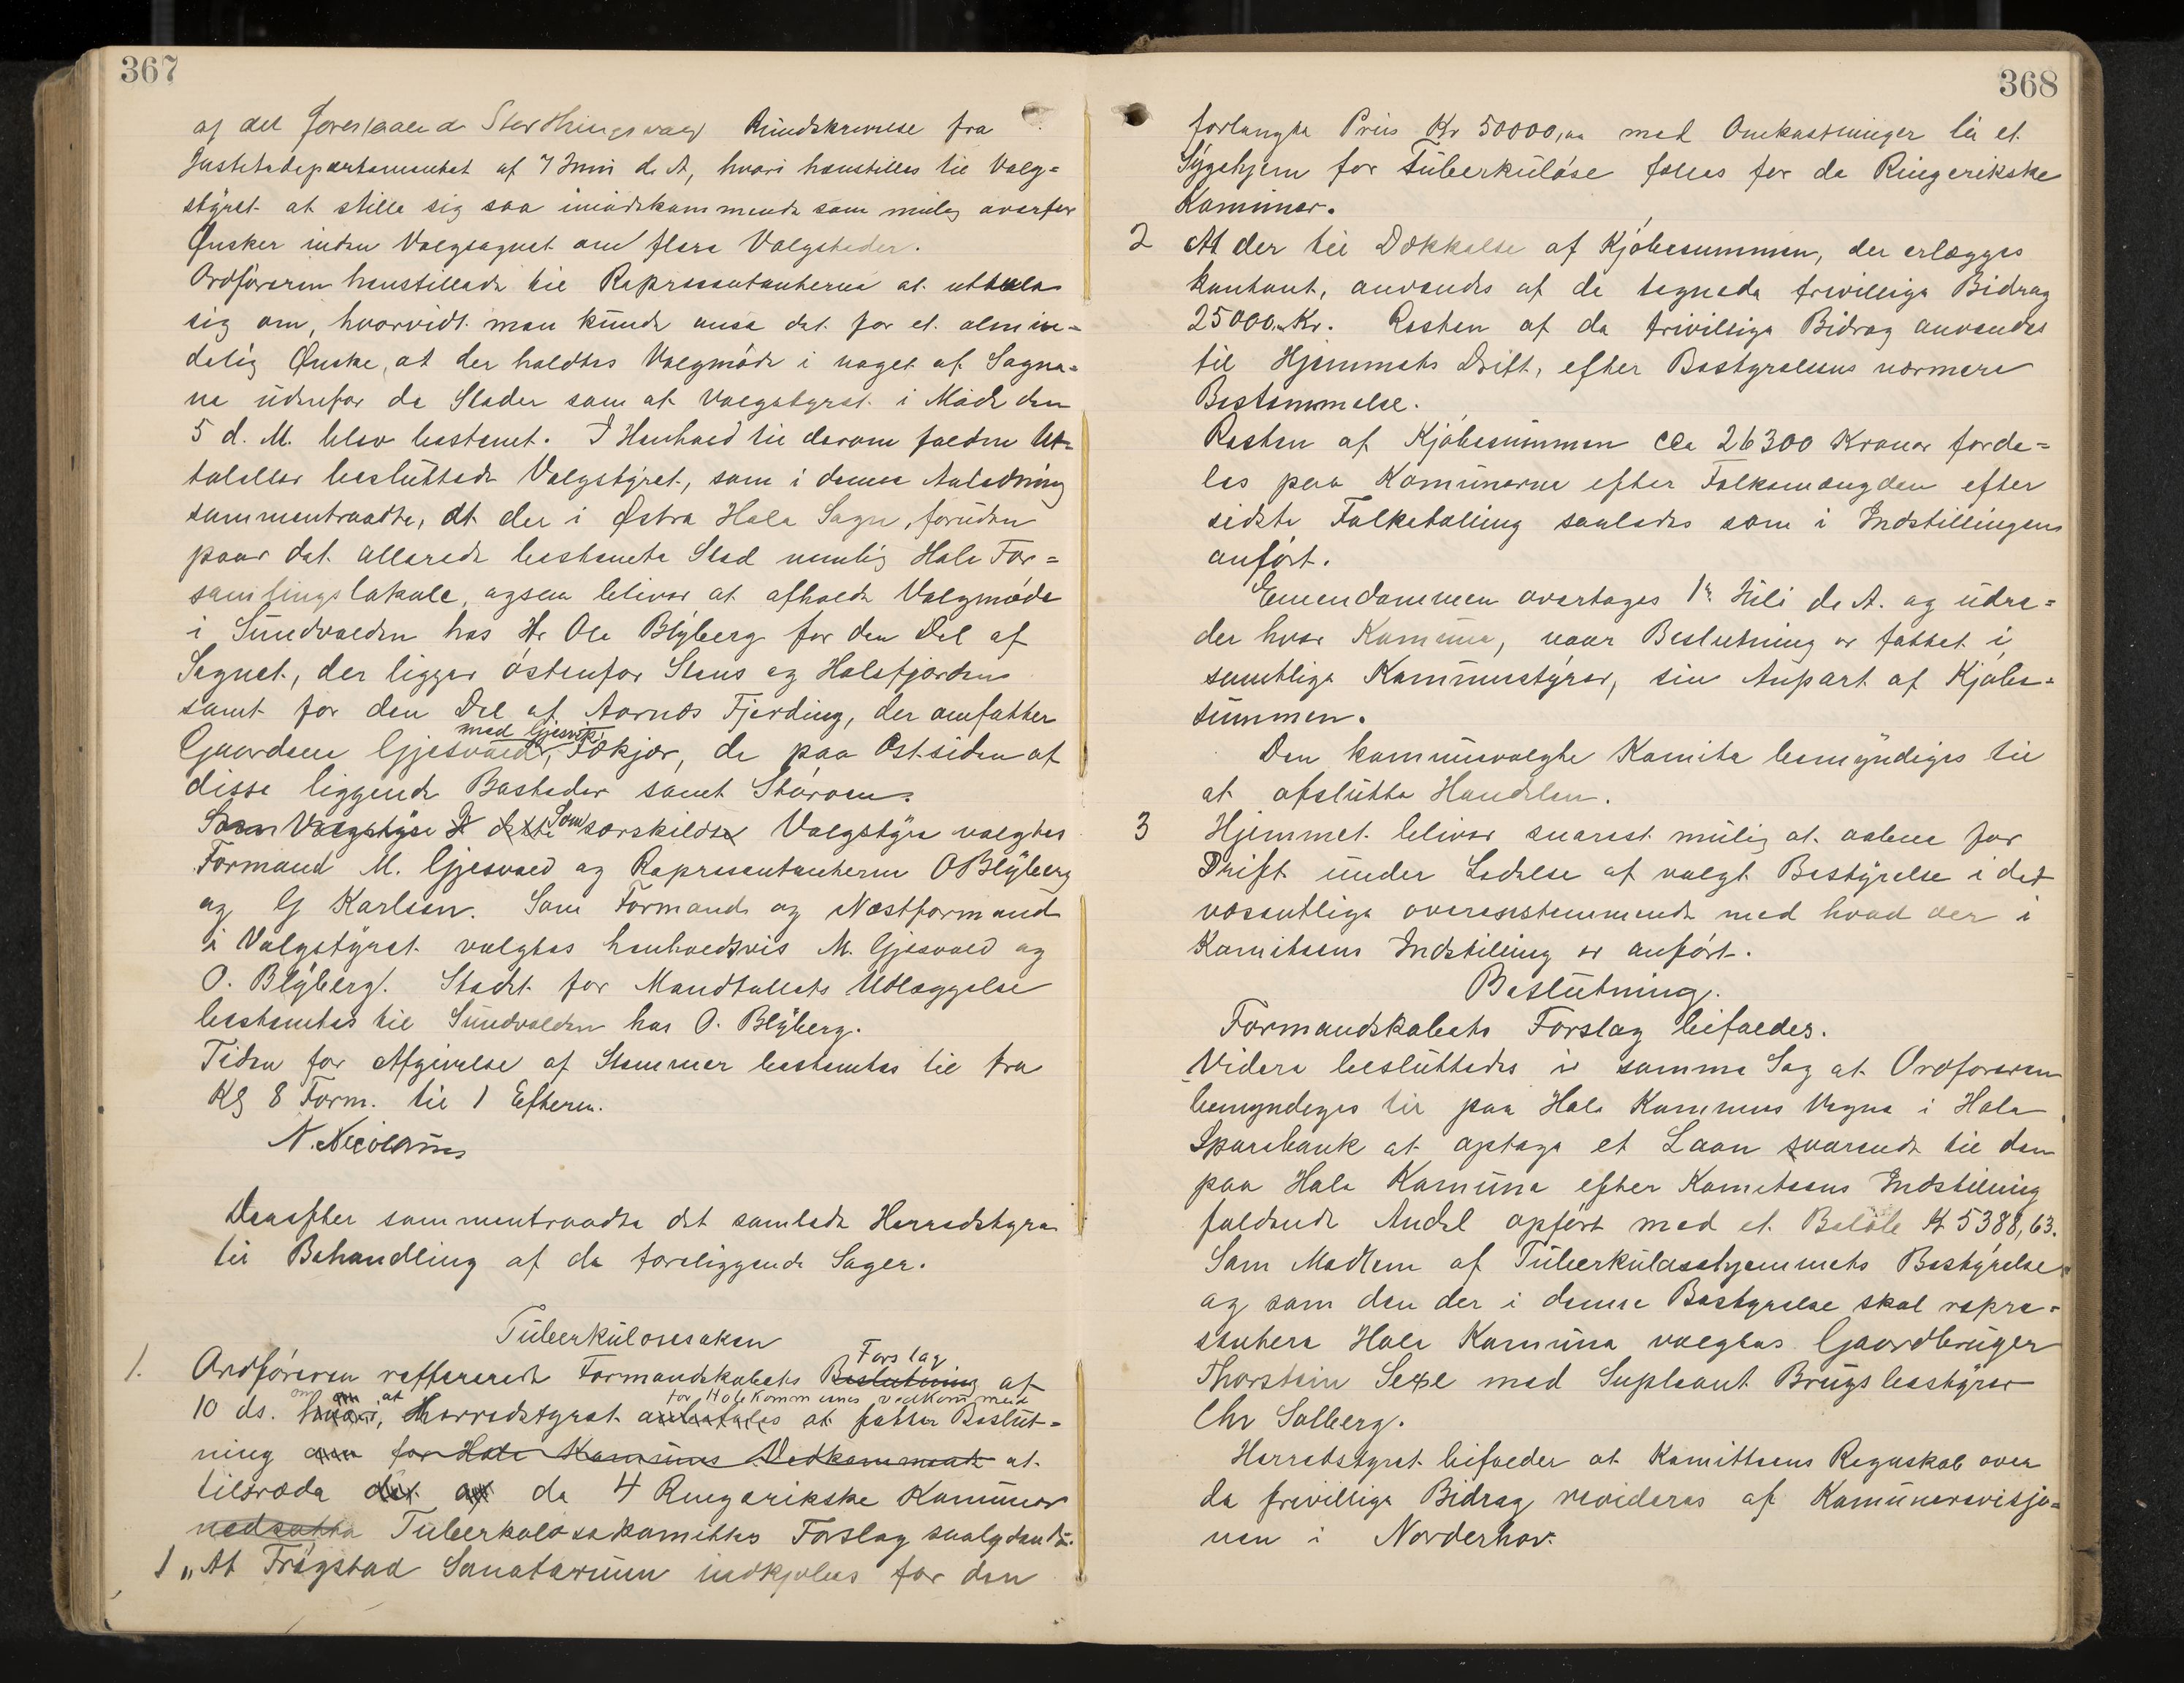 367
af det forestaaende Storthingsvalg Rundskrivelse fra
Justitsdepartementet af 7 Juni d. A, hvori henstilles til Valg=
styret at stille sig saa imødekommende som mulig overfor
Ønsker inden Valgsognet om flere Valgsteder.
Ordføreren henstillede til Repræsentanterne at uttale
sig om, hvorvidt man kunde anse det for et almin=
delig Ønske, at der holdtes Valgmøde i noget af Sogne=
ne udenfor de Steder som af Valgstyret i Møde den
5 d. M. blev bestemt. I Henhold til derom faldne Ut=
talelser besluttede Valgstyret, som i denne Anledning
sammentraadte, at der i Østre Hole Sogn, foruden
paa det allerede bestemte Sted nemlig Hole For=
samlingslokale, ogsaa bliver at afholde Valgmøde
i Sundvolden hos Hr Ole Blyberg for den Del af
Sognet, der ligger østenfor Stens og Holsfjorden
samt for den Del af Aarnes Fjerding, der omfatter
med Gjesvik
Gaardene Gjesvold, Fekjær, de paa Østsiden af
disse liggende Bosteder samt Storøen.
Som Valgstyre I dette Som særskildte Valgstyre valgtes
Formand M. Gjesvold og Repræsentanterne O Blyberg
og G Karlsen. Som Formand og Næstformand
i Valgstyret valgtes henholdsvis M. Gjesvold og
O. Blyberg. Stedet for Mandtallets Udlæggelse
bestemtes til Sundvolden hos O. Blyberg.
Tiden for Afgivelse af Stemmer bestemtes til fra
Kl 8 Form. til 1 Efterm.
N. Nicolaus
Derefter sammentraadte det samlede Herredstyre
til Behandling af de foreliggende Sager.
Tuberkulosesaken
Forslag
1. Ordføreren reffererede Formandskabets Beslutning af
om at for Hole Kommunes Vedkommende
10 ds. hvori, Herredstyret anbefales at fatte Beslut=
ning om for Hole Kommunes Vedkommende at
tilræde det af de 4 Ringerikske Kommuner
nedsatte Tuberkulosekomittes Forslag saalydende.
1 „At Frøgstad Sanatorium indkjøbes for den
368
forlangte Pris Kr 50000,00 med Omkostninger til et
Sygehjem for Tuberkuløse fælles for de Ringerikske
Kommuner.
2 At der til Dækkelse af Kjøbesummen, der erlægges
kontant, anvendes af de tegnede frivillige Bidrag
25000,00 Kr. Resten af de frivillige Bidrag anvendes
til Hjemmets Drift, efter Bestyrelsens nærmere
Bestemmelse.
Resten af Kjøbesummen cca 26300 Kroner forde=
les paa Komunerne efter Folkemængden efter
sidste Folketælling saaledes som i Indstillingen
anført.
Eiendommen overtages 1ste Juli d. A. og udre=
der hver Komune, naar Beslutning er fattet i
samtlige Kommunestyrer, sin Anpart af Kjøbe=
summen.
Den kommunevalgte Komite bemyndiges til
at afslutte Handelen.
3 Hjemmet bliver snarest mulig at aabne for
Drift under Ledelse af valgt Bestyrelse i det
væsentlige overensstemmende med hvad der i
Komiteens Indstilling er anført.
Beslutning.
Formandskabets Forslag bifaldes.
Videre besluttedes i samme Sag at Ordføreren
bemyndiges til paa Hole Kommunes Vegne i Hole
Sparebank at optage et Laan svarende til den
paa Hole Komune efter Komiteens Indstilling
faldende Andel opført med et Beløb Kr 5388,63.
Som Medlem af Tuberkulosehjemmets Bestyrelse
og som den der i denne Bestyrelse skal repræ=
sentere Hole Komune valgtes Gaardbruger
Thorstein Sexe med Supleant Brugsbestyrer
Chr Solberg.
Herredstyret bifalder at Komitteens Regnskab over
de frivillige Bidrag revideres af Komunerevisjo=
nen i Norderhov.